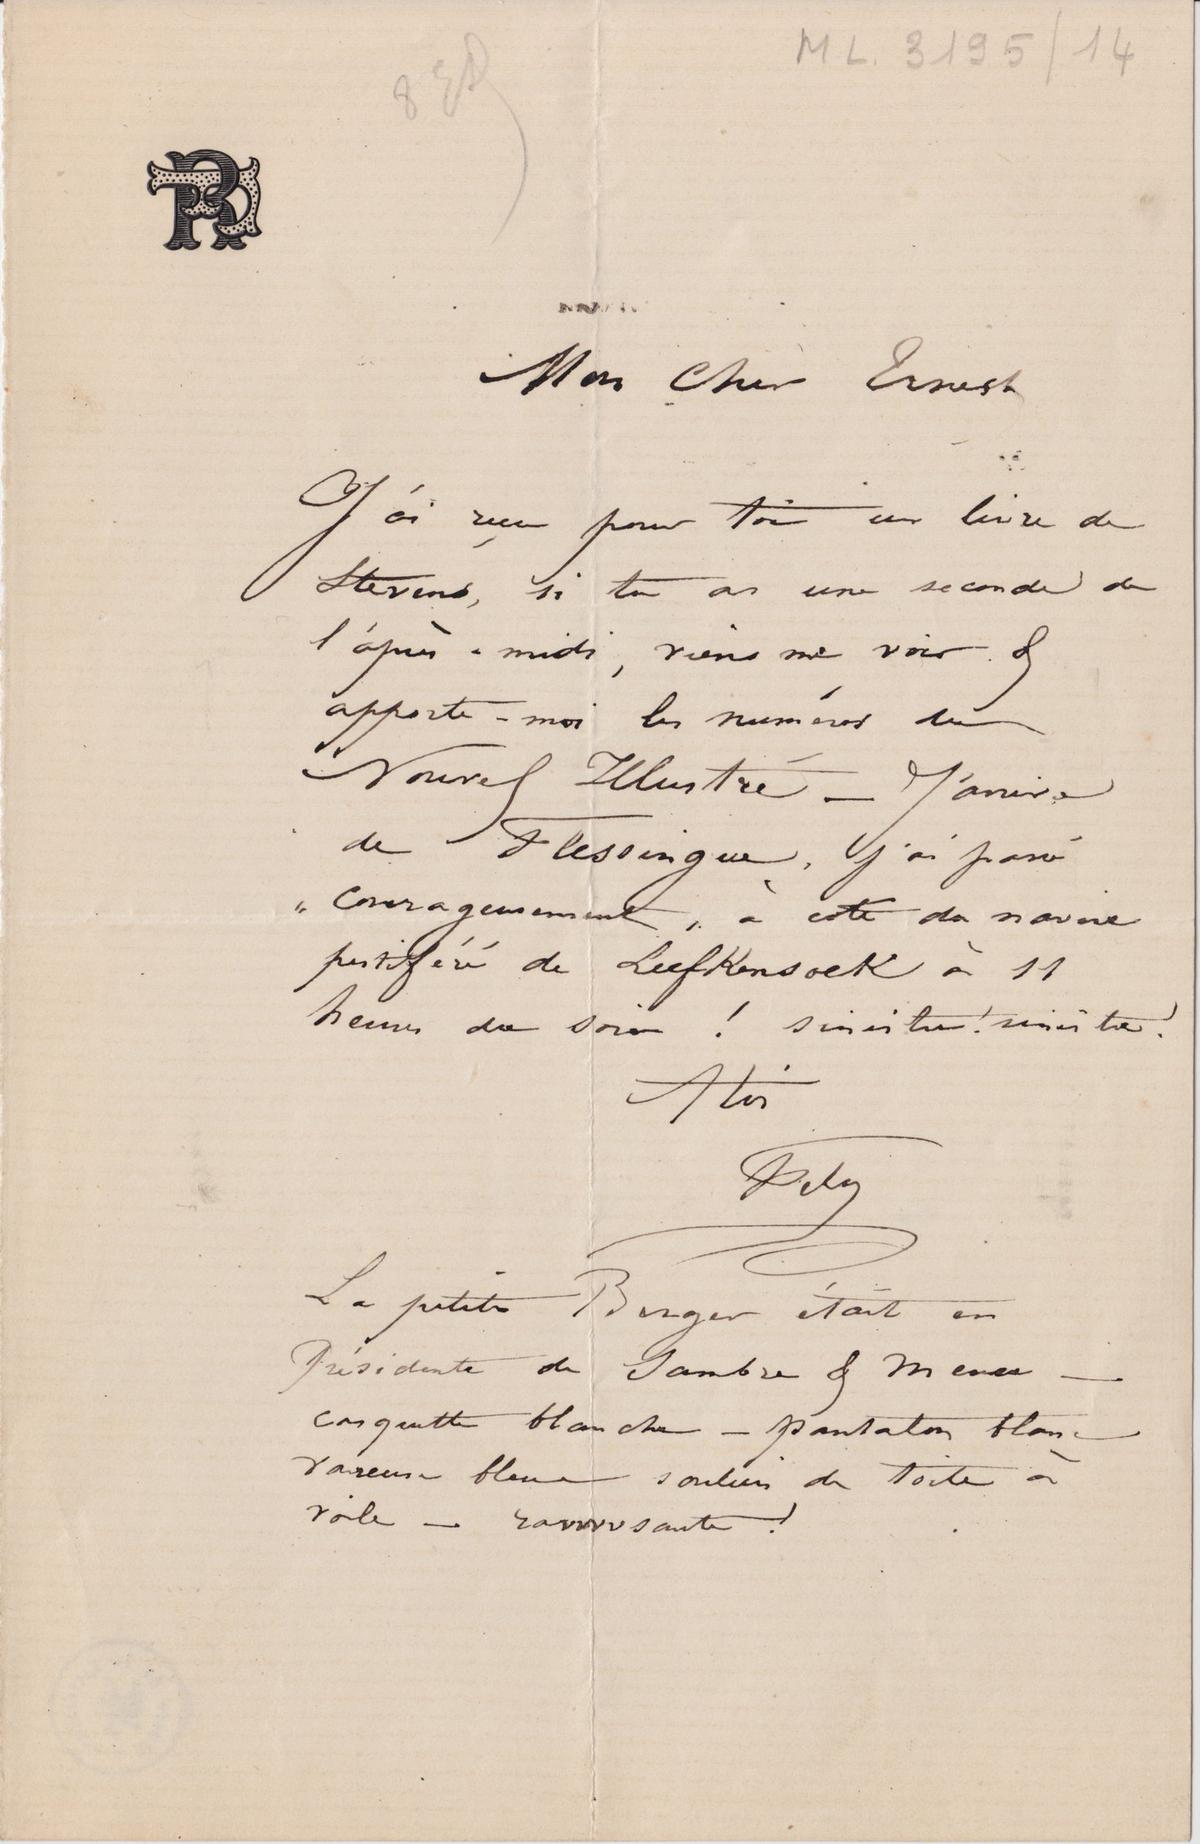 ML. 3195/14
Mon Cher Ernest
J'ai reçu pour toi un livre de
Stevens, si tu as une seconde de
l'après-midi, viens me voir &
apporte-moi les numéros du
Nouvel Illustré — J'arrive
de Flessingue, j'ai passé
"courageusement" à côté du navire
pestiféré de Liefkensoek à 11
heures du soir ! sinistre ! sinistre !
A toi
Fély
La petite Berger était en
Présidente de Sambre & Meuse —
casquette blanche — pantalon blanc
vareuse bleue souliers de toile à
voile — ravvvvssante !